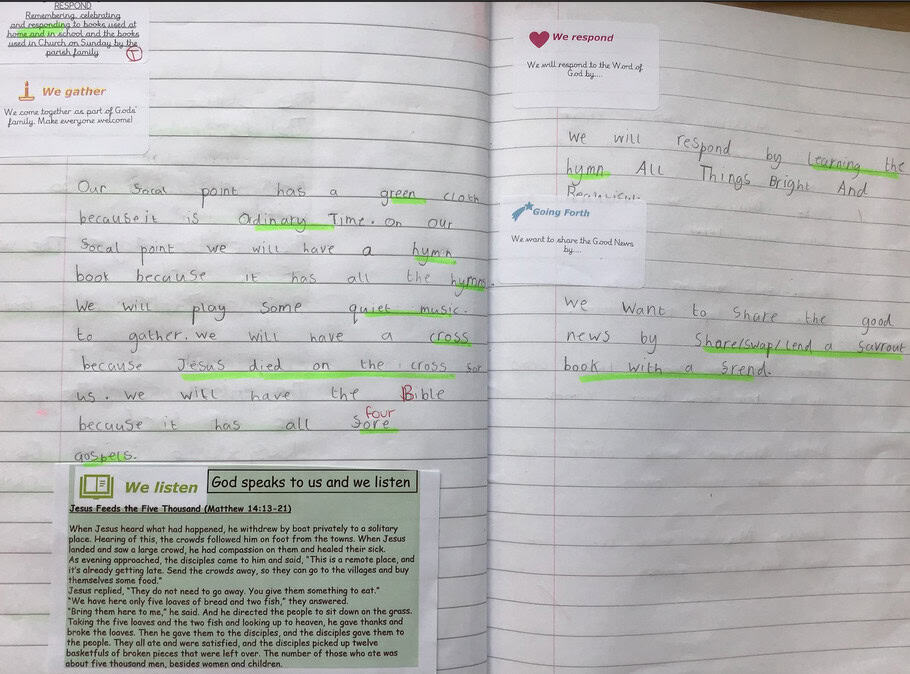 RESPOND
Remembering, celebrating
and responding to books used at
home and in school and the books
used in Church on Sunday by the
parish family
T
We gather
We come together as part of Gods'
family. Make everyone welcome!
Our focal point has a green cloth
because it is Ordinary Time. on our
focal point we will have a hymn
book because it has all the hymns.
We will play some quiet music.
to gather. we will have a cross
because Jesus died on the cross for
us. we will have the Bible
because it has all fore
four
gospels.
We listen
God speaks to us and we listen
Jesus Feeds the Five Thousand (Matthew 14:13-21)
When Jesus heard what had happened, he withdrew by boat privately to a solitary
place. Hearing of this, the crowds followed him on foot from the towns. When Jesus
landed and saw a large crowd, he had compassion on them and healed their sick.
As evening approached, the disciples came to him and said, "This is a remote place, and
it's already getting late. Send the crowds away, so they can go to the villages and buy
themselves some food."
Jesus replied, "They do not need to go away. You give them something to eat."
"We have here only five loaves of bread and two fish," they answered.
"Bring them here to me," he said. And he directed the people to sit down on the grass.
Taking the five loaves and the two fish and looking up to heaven, he gave thanks and
broke the loaves. Then he gave them to the disciples, and the disciples gave them to
the people. They all ate and were satisfied, and the disciples picked up twelve
basketfuls of broken pieces that were left over. The number of those who ate was
about five thousand men, besides women and children.
We respond
We will respond to the Word of
God by....
We will respond by Learning the
hymn All Things Bright And
Going Forth
We want to share the Good News
by....
We want to share the good
news by Share/swap/lend a savrout
book with a frend.